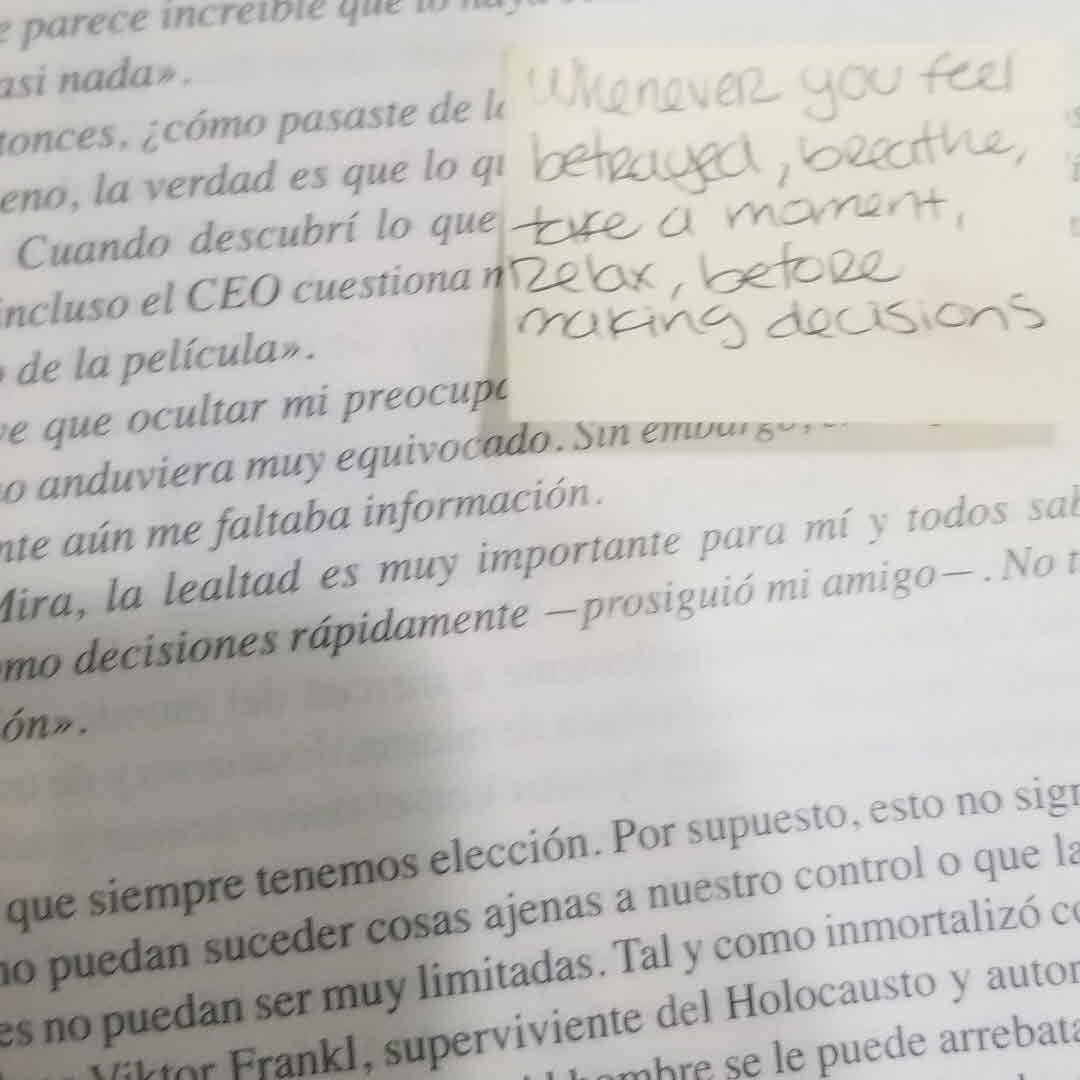 parece increíble que lo
asi nada».
¿cómo pasaste de
la verdad es que lo
Cuando descubrí lo que
incluso el CEO cuestiona
de la película».
que ocultar mi
anduviera muy equivocado. Sin
aún me faltaba información.
Mira, la lealtad es muy importante para mí y todos
decisiones rápidamente —prosiguió mi amigo—. No
Whenever you feel
betrayed, breathe,
take a moment,
Relax, before
making decisions
que siempre tenemos elección. Por supuesto, esto no
no puedan suceder cosas ajenas a nuestro control o que
es no puedan ser muy limitadas. Tal y como inmortalizó
Viktor Frankl, superviviente del Holocausto y autor
hombre se le puede